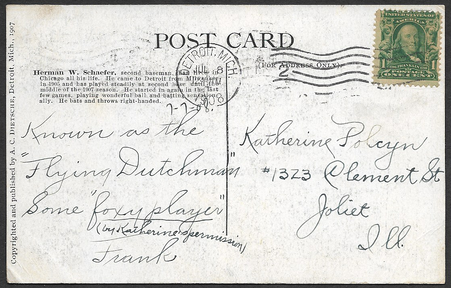 POST CARD
(FOR ADDRESS ONLY).
Herman W. Schaefer, second baseman, has lived in
Chicago all his life. He came to Detroit from Milwaukee
in 1905 and has played steadily at second base until the
middle of the 1907 season. He started in again in the last
few games, playing wonderful ball and batting sensation-
ally. He bats and throws right-handed.
Copyrighted and published by A. C. DIETSCHE, Detroit, Mich., 1907
DETROIT, MICH.
JUL 8
1908
2
1
7-7-08.
Known as the
"Flying Dutchman"
Some "foxy player"
(by Katherine's permission)
Frank
Katherine Polcyn
#1323 Clement St
Joliet
Ill.